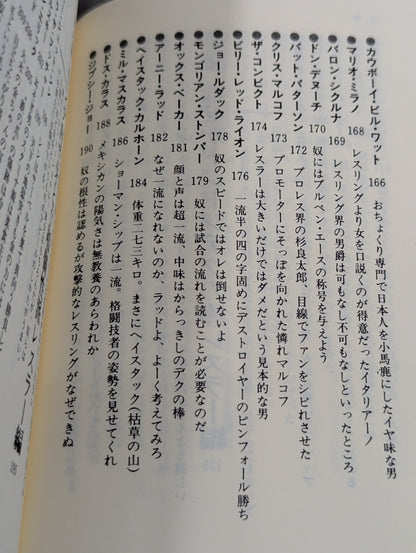 ●カウボーイ・ビル・ワット 166 おちょくり専門で日本人を小馬鹿にしたイヤ味な男
●マリオ・ミラノ 168 レスリングより女を口説くのが得意だったイタリアーノ
●バロン・シクルナ 169 レスリング界の男爵は可もなし不可もなしといったところ
●ドン・デヌーチ 170 奴にはブルペン・エースの称号を与えよう
●パット・パターソン 172 プロレス界の杉良太郎、目線でファンをシビれさせた
●クリス・マルコフ 173 プロモーターにそっぽを向かれた憐れマルコフ
●ザ・コンビクト 174 レスラーは大きいだけではダメだという見本的な男
●ビリー・レッド・ライオン 176 一流半の四の字固めにデストロイヤーのピンフォール勝ち
●ジョー・ルダック 178 奴のスピードではオレは倒せないよ
●モンゴリアン・ストンパー 179 奴には試合の流れを読むことが必要なのだ
●オックス・ベーカー 181 顔と声は超一流、中味はからっきしのデクの棒
●アーニー・ラッド 182 なぜ一流になれないのか、ラッドよ、よーく考えてみろ
●ヘイスタック・カルホーン 184 体重二七三キロ。まさにヘイスタック(枯草の山)
●ミル・マスカラス 186 ショーマン・シップは一流。格闘技者の姿勢を見せてくれ
●ドス・カラス 188 メキシカンの陽気さは無教養のあらわれか
●ジプシー・ジョー 190 奴の根性は認めるが攻撃的なレスリングがなぜできぬ
195